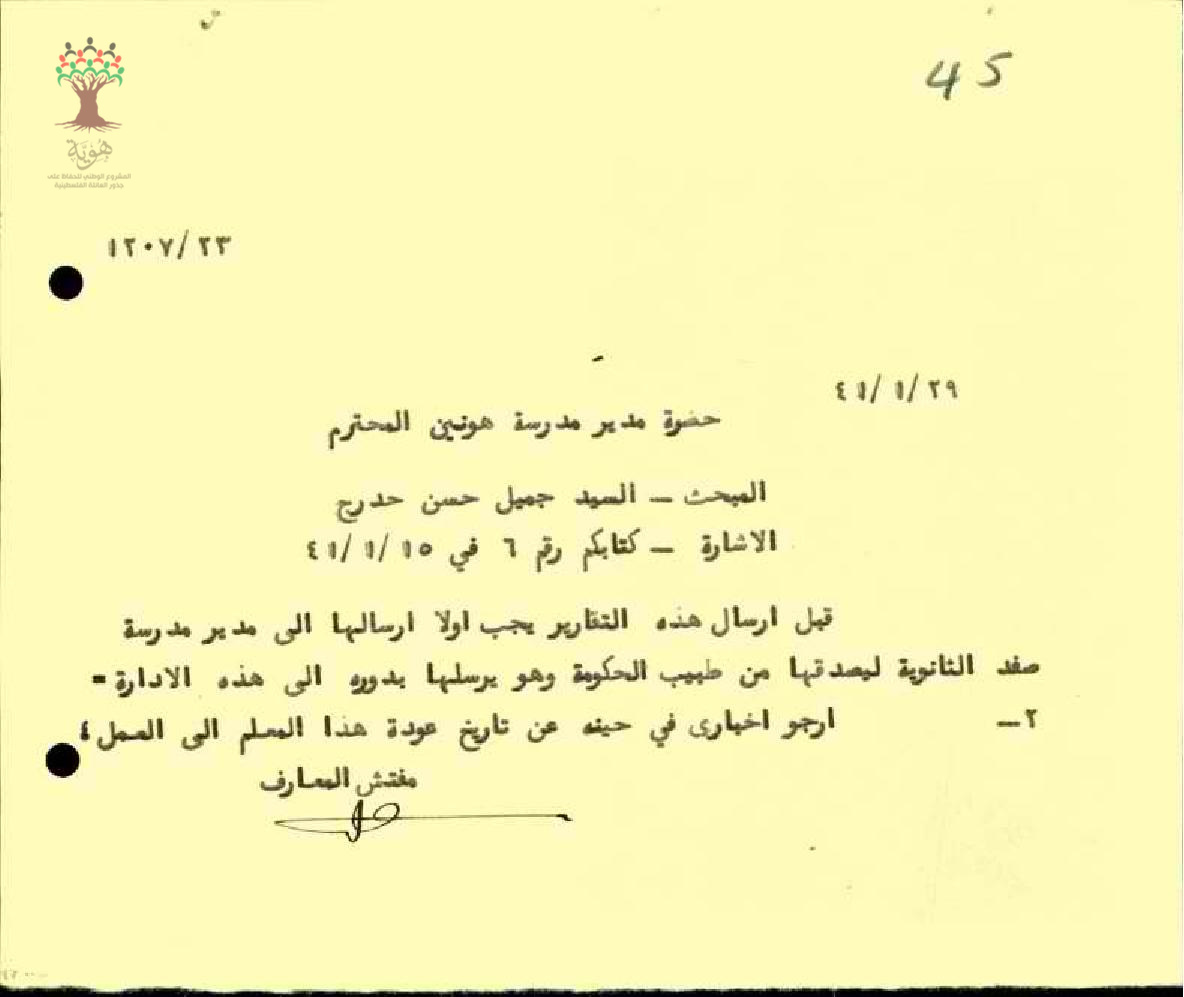 45
هوية
المشروع الوطني للحفاظ على
جذور العائلة الفلسطينية
١٢٠٧/٢٣
٤١/١/٢٩
حضرة مدير مدرسة هونين المحترم
المبحث – السيد جميل حسن حدرج
الاشارة – كتابكم رقم ٦ في ٤١/١/١٥
قبل ارسال هذه التقارير يجب اولا ارسالها الى مدير مدرسة
صفد الثانوية ليصدقها من طبيب الحكومة وهو يرسلها بدوره الى هذه الادارة -
٢– ارجو اخبارى في حينه عن تاريخ عودة هذا المعلم الى العمل ؛
مفتش المعارف